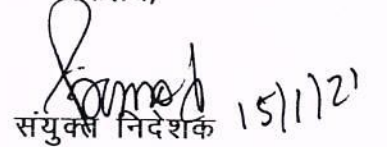 15/1/21
संयुक्त निदेशक